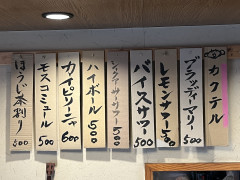 カクテル
ブラッディーマリー
500
レモンサワー
500
バイスサワー
500
500
ハイボール
500
カイピリーニャ
600
モスコミュール
500
ほうじ茶割り
500